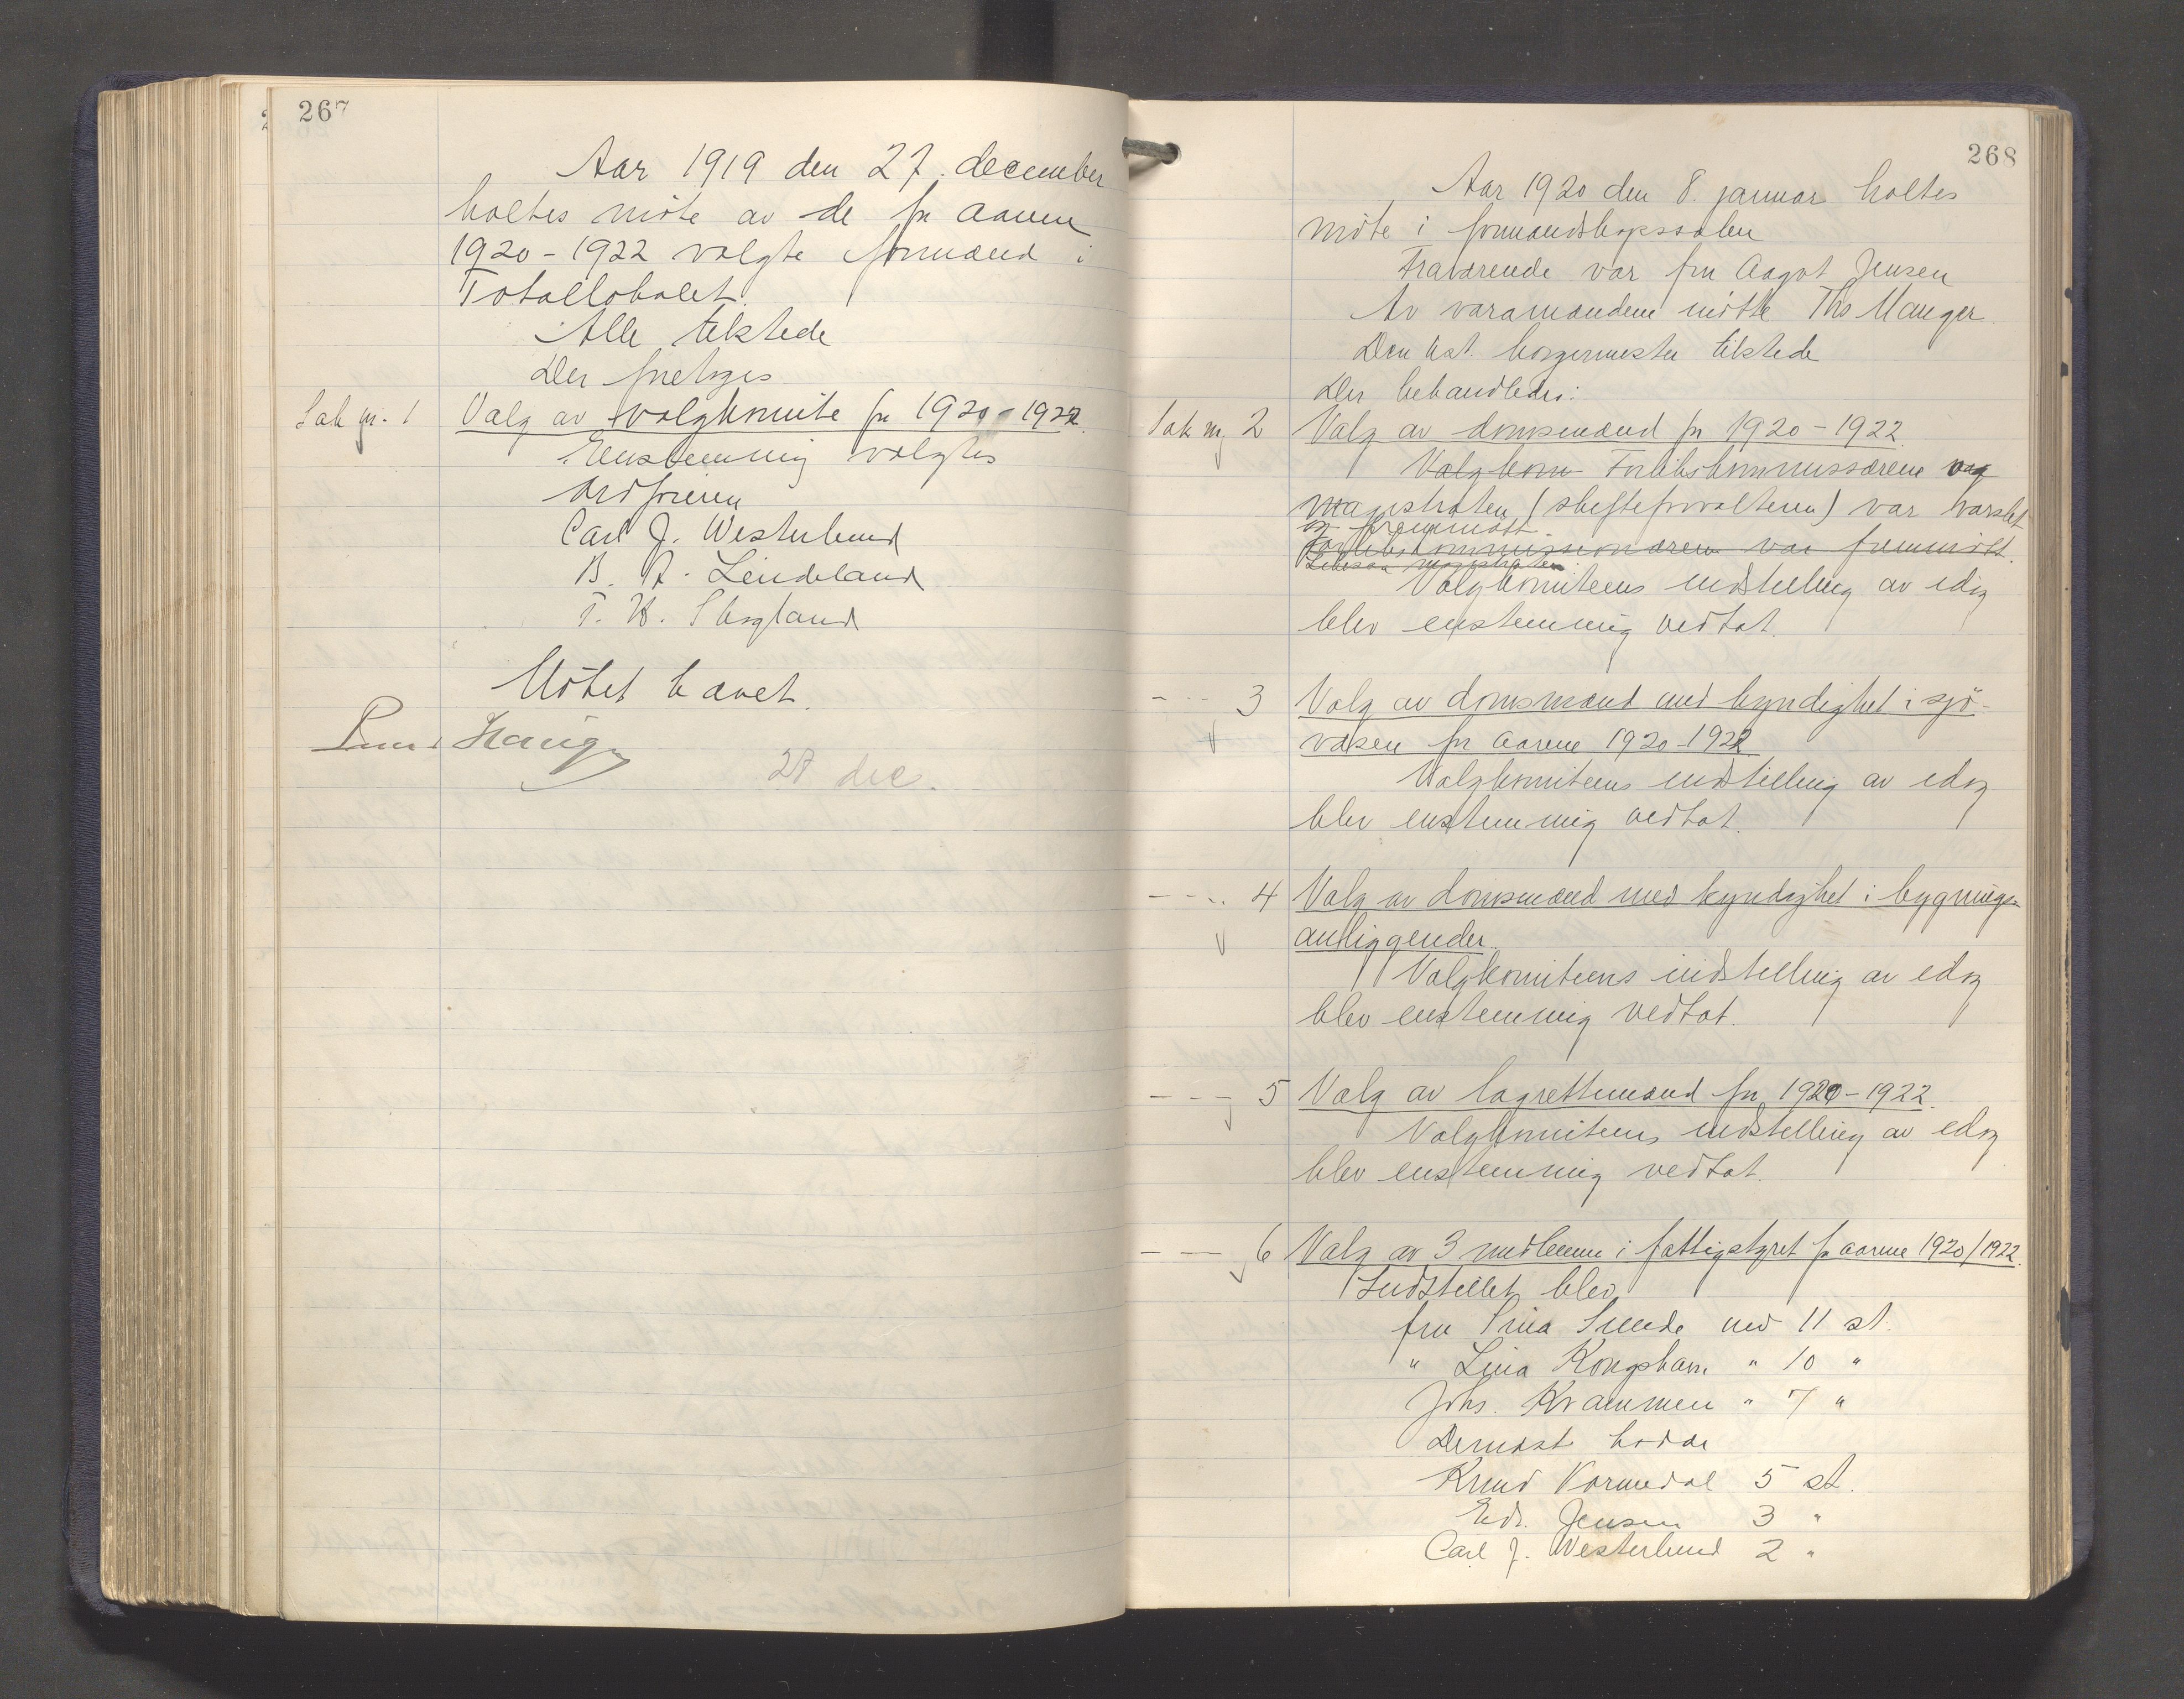 267
Aar 1919 den 27. december
holtes møte av de for aarene
1920-1922 valgte formænd i
Totallokalet.
Alle tilstede
Der foretoges
Sak nr. 1 Valg av valgkomite for 1920-1922.
Enstemmig valgtes
Ordføreren
Carl J. Westerlund
B. A. Lindeland
T. H. Skogland
Møtet hævet.
Hauge
27 dec.
268
Aar 1920 den 8. januar holtes
møte i formandskapssalen
Fraværende var fru Aagot Jensen
Av varamændene møtte Ths Mauger.
Den kst. borgermester tilstede
Der behandledes:
Sak nr 2 Valg av domsmænd for 1920-1922.
Valgkom Forlikskommissærene og
magistraten (skifteforvalteren) var varslet
og fremmøtt.
Forlikskommissionæren var fremmøtt.
Likesaa magistraten
Valgkomiteens indstilling av idag
blev enstemmig vedtat.
- - - 3 Valg av domsmænd med kyndighet i sjø-
væsen for aarene 1920-1922
Valgkomiteens indstilling av idag
blev enstemmig vedtat.
- - - 4 Valg av domsmænd med kyndighet i bygnings-
anliggender.
Valgkomiteens indstilling av idag
blev enstemmig vedtat.
- - - 5 Valg av lagrettemænd for 1920-1922.
Valgkomiteens indstilling av idag
blev enstemmig vedtat.
- - 6 Valg av 3 medlemmer i fattigstyret for aarene 1920/1922.
Indstillet blev
fru Sina Svende med 11 st.
" Lina Kongshavn " 10 "
Johs. Kvammen " 7 "
Dernæst hadde
Knud Vormedal 5 st.
Edv. Jensen 3 "
Carl J. Westerlund 2 "